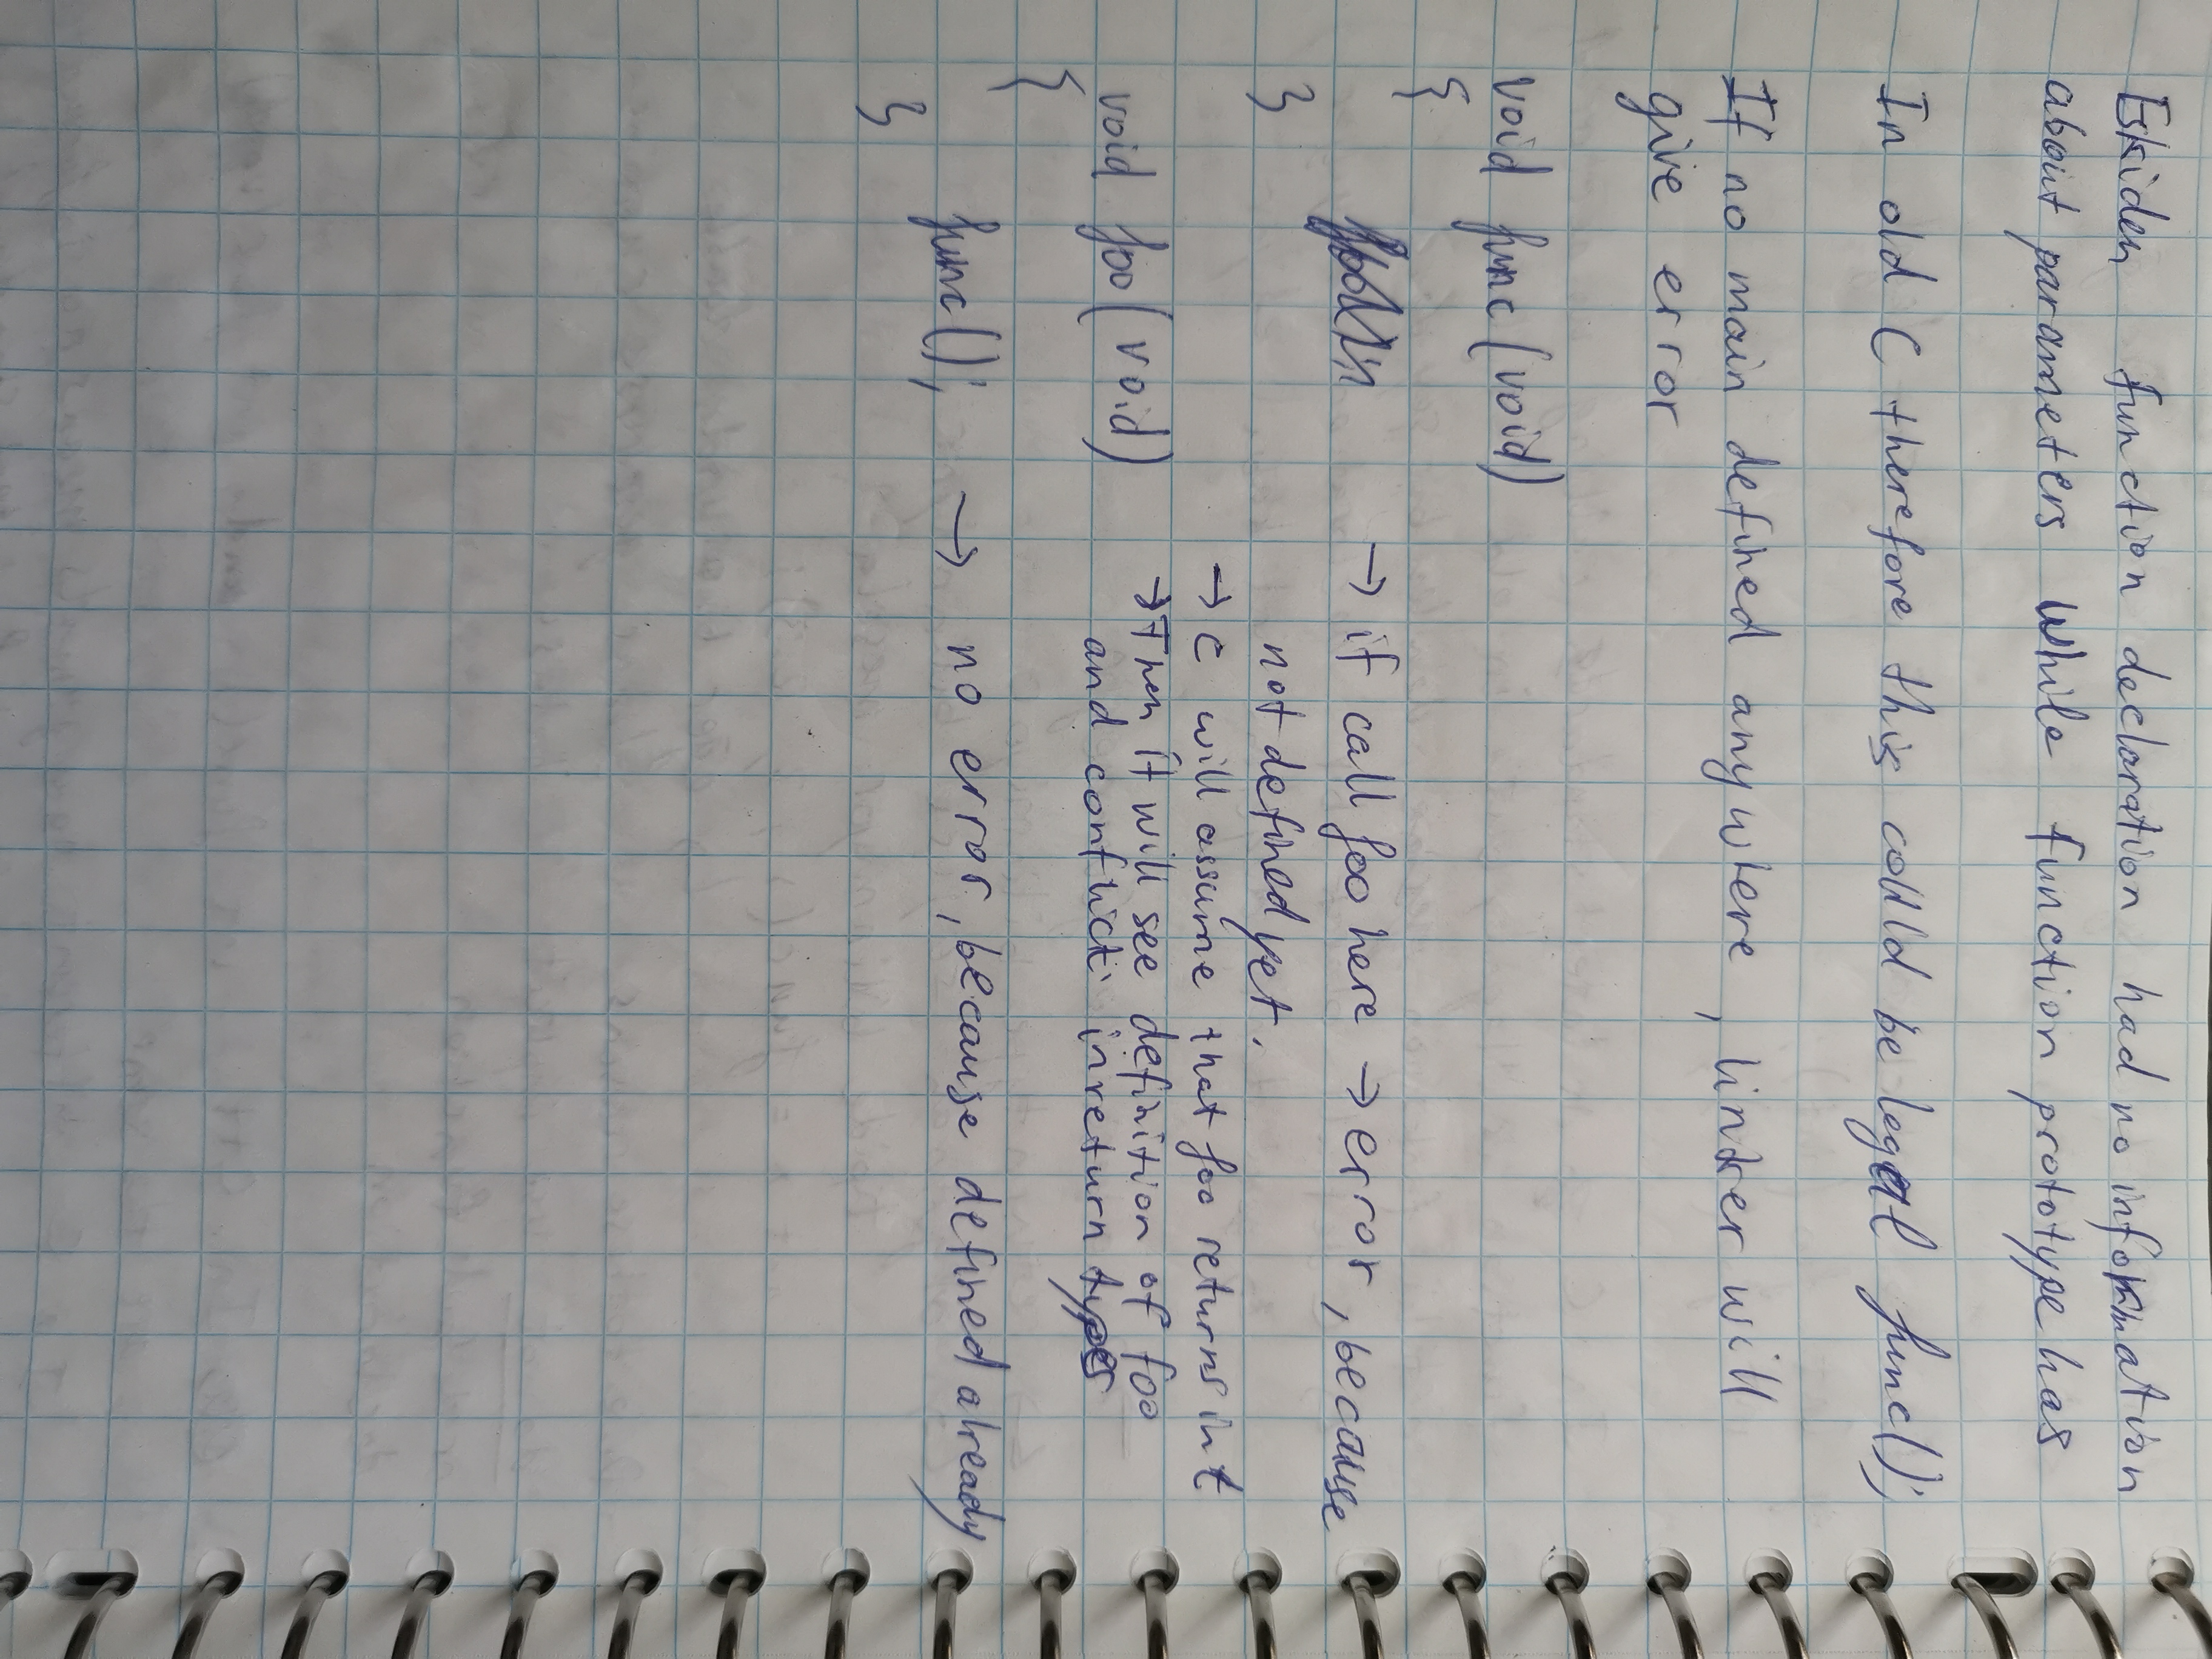 Eskiden function declaration had no information
about parameters while function prototype has
In old C therefore this could be legal func();
If no main defined anywhere, linker will
give error
void func(void)
{
→ if call foo here → error, because
}
not defined yet.
→ C will assume that foo returns int
void foo(void)
→ Then it will see definition of foo
and conflict in return types
{
func(); → no error, because defined already
}